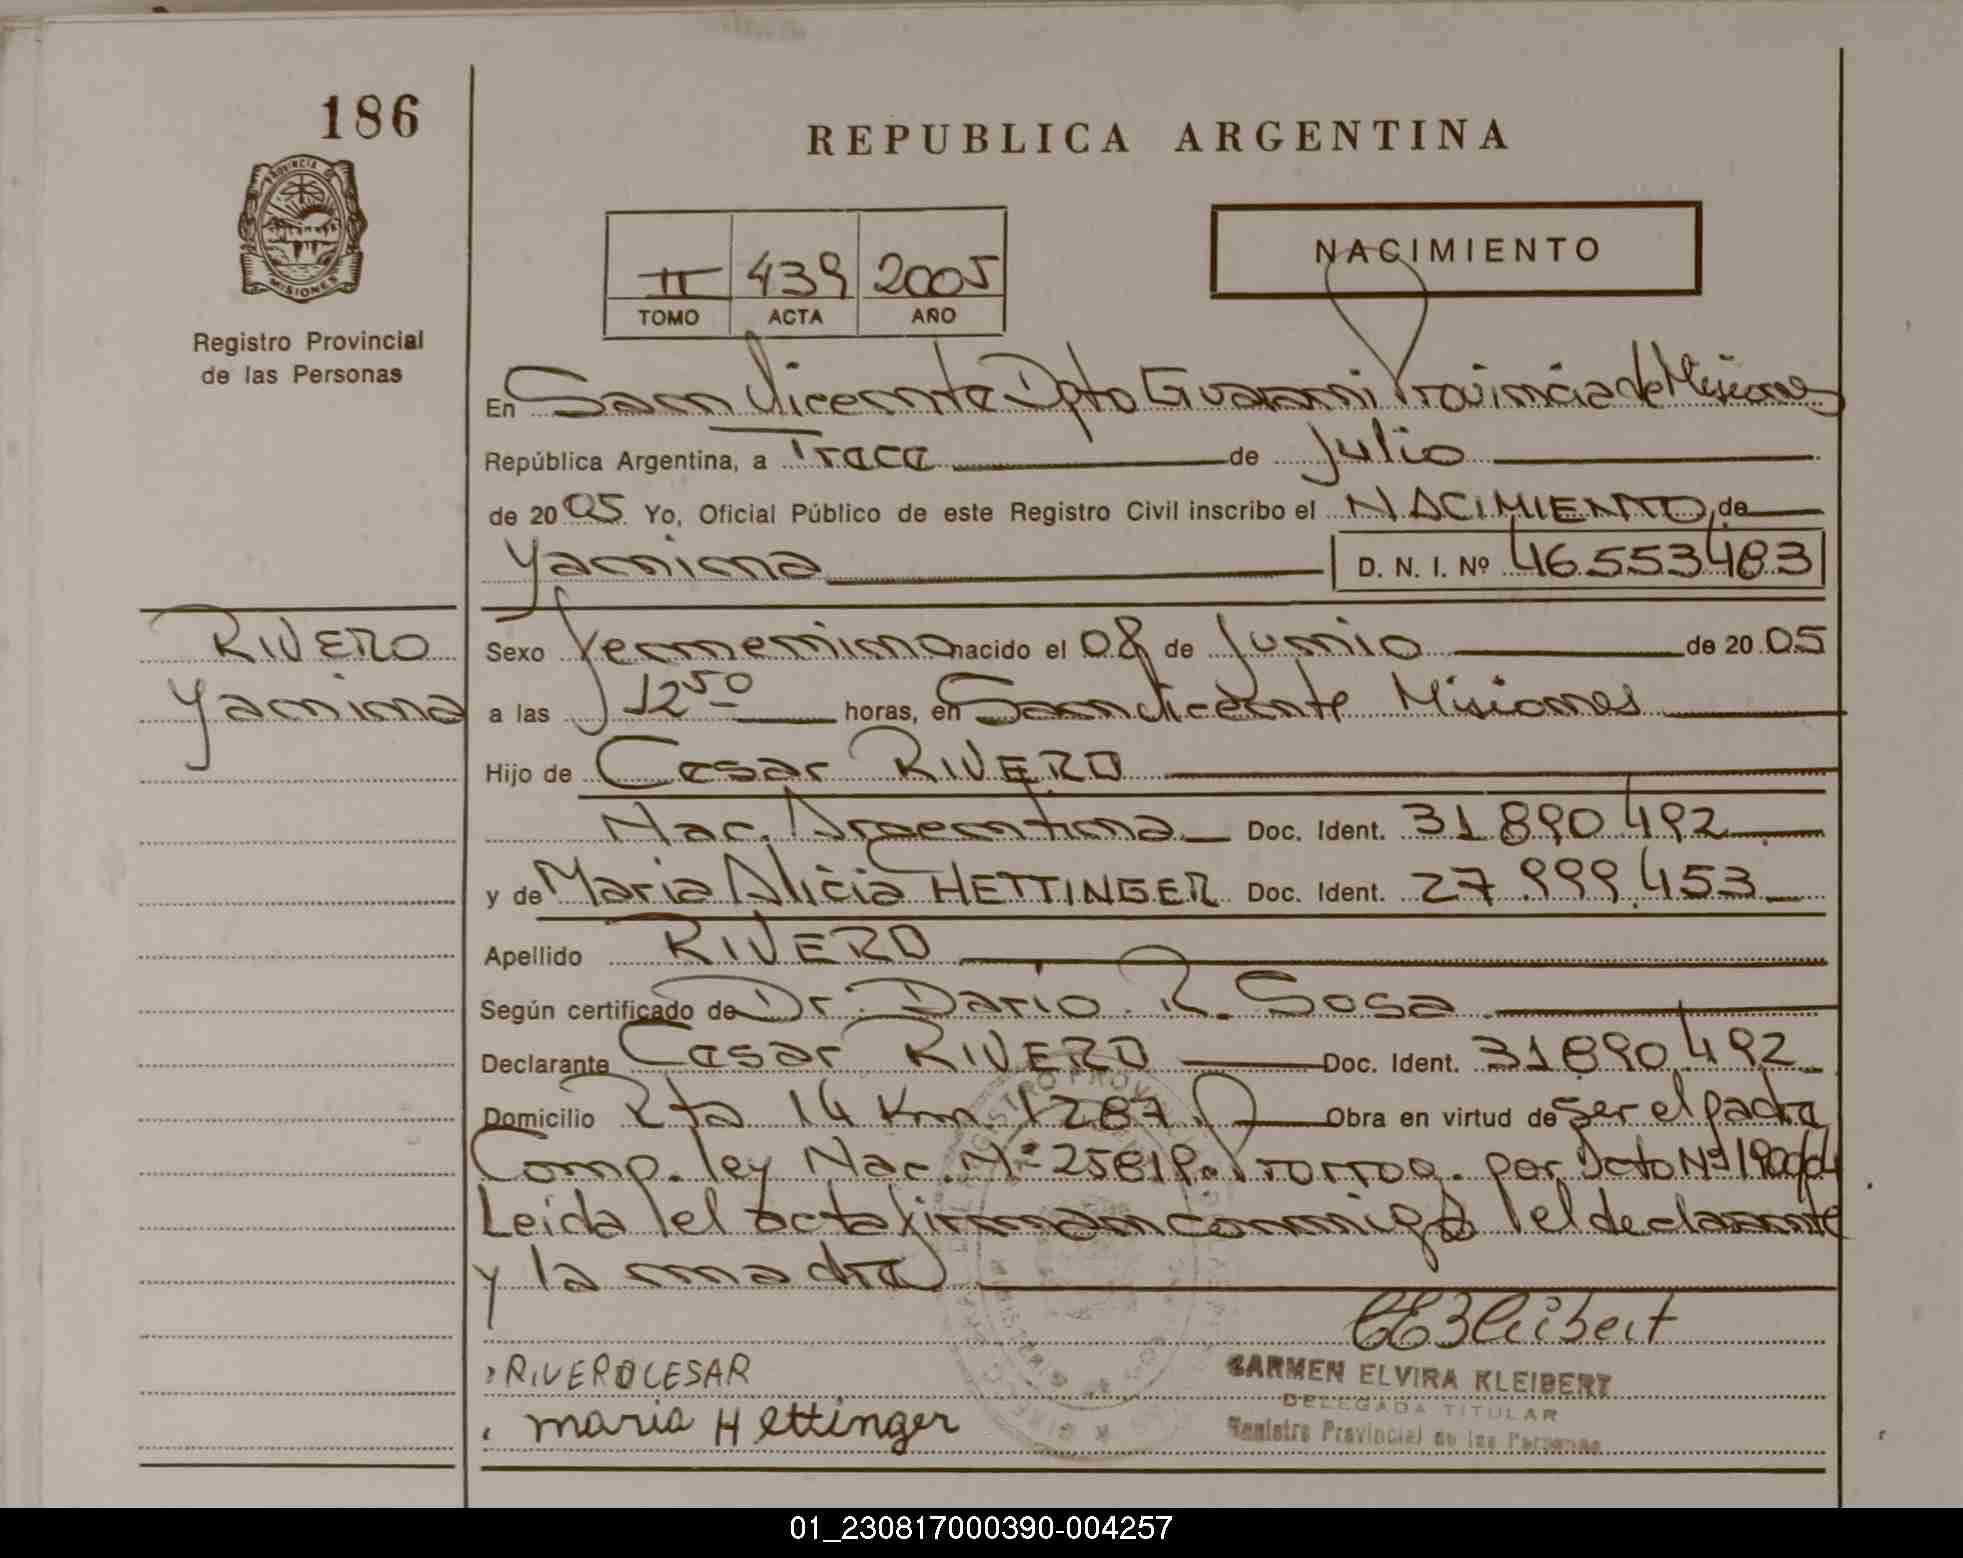 186
REPUBLICA ARGENTINA
PROVINCIA DE
MISIONES
II 439 2005
TOMO ACTA AÑO
NACIMIENTO
Registro Provincial
de las Personas
En San Vicente Dpto Guarani Provincia de Misiones
República Argentina, a Trece de Julio
de 2005 Yo, Oficial Público de este Registro Civil inscribo el NACIMIENTO, de
Yanina D. N. I. Nº 46.553483
RIVERO
Yanina
Sexo femenino nacido el 08 de Junio de 2005
a las 12 50 horas, en San Vicente Misiones
Hijo de Cesar RIVERO
Nac. Argentina Doc. Ident. 31890492
y de Maria Alicia HETTINGER Doc. Ident. 27.999.453
Apellido RIVERO
Según certificado de Dr. Dario R. Sosa
Declarante Cesar RIVERO Doc. Ident. 31890492
Domicilio Rta 14 Km 1287 Obra en virtud de ser el padre
Comp. ley Nac. Nº 25819. Prorrog. por Dcto Nº 190/04
Leida el acta firman conmigo el declarante
y la madre
RIVERO CESAR
maria Hettinger
CARMEN ELVIRA KLEIBERT
DELEGADA TITULAR
Registro Provincial de las Personas
01_230817000390-004257